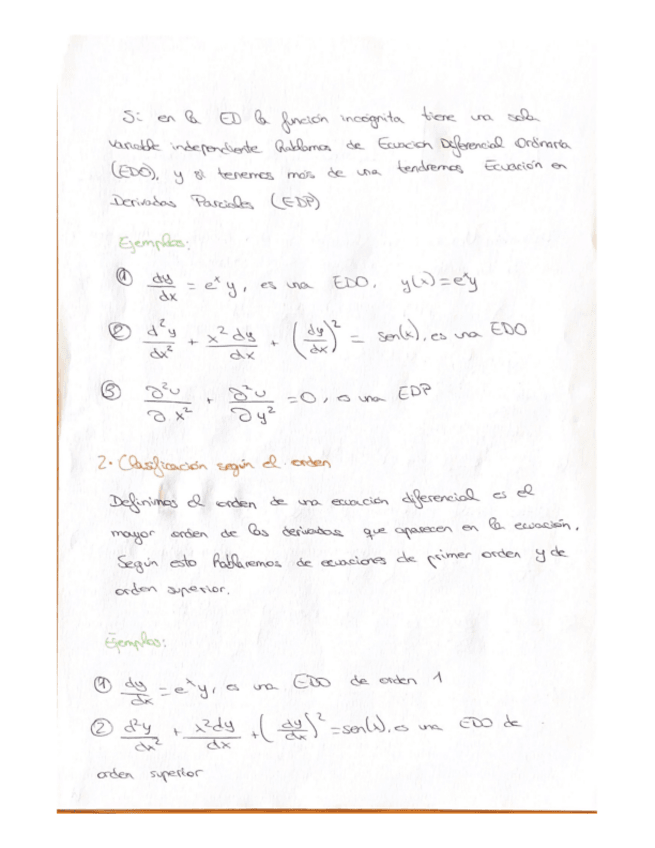 Si en la ED la función incógnita tiene una sola
variable independiente hablamos de Ecuación Diferencial Ordinaria
(EDO), y si tenemos más de una tendremos Ecuación en
Derivadas Parciales (EDP)
Ejemplos:
① dy/dx = eˣy, es una EDO. y(x)=eˣy
② d²y/dx² + x²dy/dx + (dy/dx)² = sen(x), es una EDO
③ ∂²u/∂x² + ∂²u/∂y² = 0, es una EDP
2. Clasificación según el orden
Definimos el orden de una ecuación diferencial es el
mayor orden de las derivadas que aparecen en la ecuación.
Según esto hablaremos de ecuaciones de primer orden y de
orden superior.
Ejemplos:
① dy/dx = eˣy, es una EDO de orden 1
② d²y/dx² + x²dy/dx + (dy/dx)² = sen(x), es una EDO de
orden superior